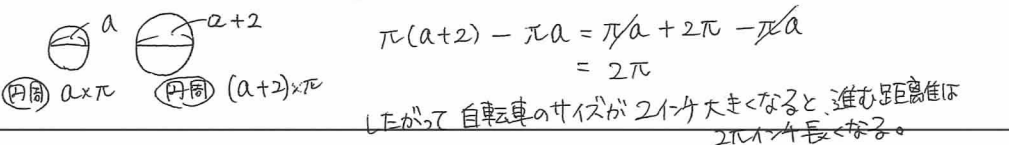 a
a+2
円周 a×π
円周 (a+2)×π
π(a+2) − πa = πa + 2π − πa
= 2π
したがって 自転車のサイズが 2インチ大きくなると、進む距離は
2πインチ長くなる。